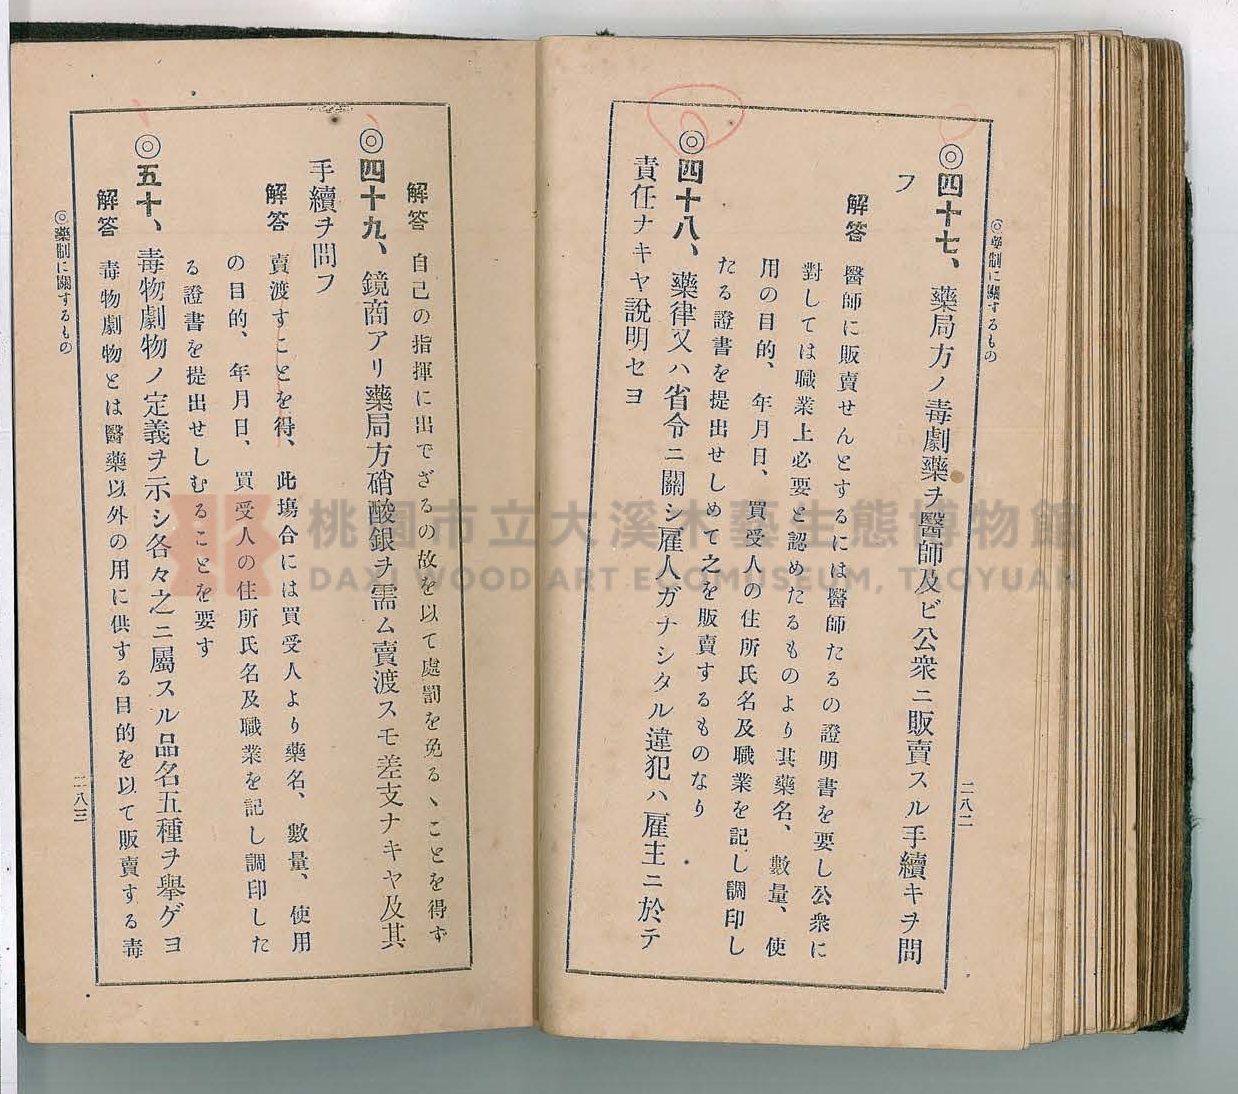 ◎藥制に關するもの
二八二
◎四十七、藥局方ノ毒劇藥ヲ醫師及ビ公衆ニ販賣スル手續キヲ問
フ
解答 醫師に販賣せんとするには醫師たるの證明書を要し公衆に
對しては職業上必要と認めたるものより其藥名、數量、使
用の目的、年月日、買受人の住所氏名及職業を記し調印し
たる證書を提出せしめて之を販賣するものなり
◎四十八、藥律又ハ省令ニ關シ雇人ガナシタル違犯ハ雇主ニ於テ
責任ナキヤ說明セヨ
解答 自己の指揮に出でざるの故を以て處罰を免るヽことを得ず
◎四十九、鏡商アリ藥局方硝酸銀ヲ需ム賣渡スモ差支ナキヤ及其
手續ヲ問フ
解答 賣渡すことを得、此塲合には買受人より藥名、數量、使用
の目的、年月日、買受人の住所氏名及職業を記し調印した
る證書を提出せしむることを要す
◎五十、毒物劇物ノ定義ヲ示シ各々之ニ屬スル品名五種ヲ擧ゲヨ
解答 毒物劇物とは醫藥以外の用に供する目的を以て販賣する毒
◎藥制に關するもの
二八三
桃園市立大溪木藝生態博物館
DAXI WOOD ART ECOMUSEUM, TAOYUAN